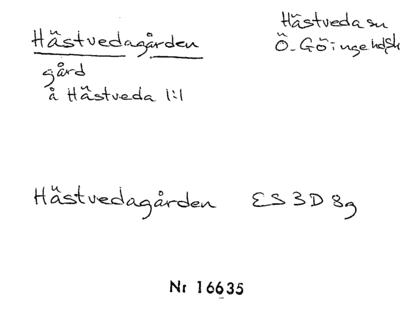 Hästvedagården
Hästveda sn
Ö. Göinge hd Sk
gård
å Hästveda 1:1
Hästvedagården ES 3D 8g
Nr 16635